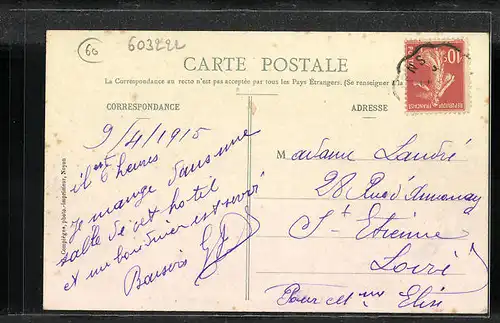 60
603222
CARTE POSTALE
La Correspondance au recto n'est pas acceptée par tous les Pays Étrangers. (Se renseigner à la
CORRESPONDANCE
ADRESSE
10
REPUBLIQUE FRANÇAISE
9/4/1915
il est 6 heures
Je mange dans une
salle de cet hotel
et un est servi
Baisers
Madame
28 Rue d'Annonay
St Etienne
Loire
Pour Elise
Compiègne, photo-imprimeur, Noyon